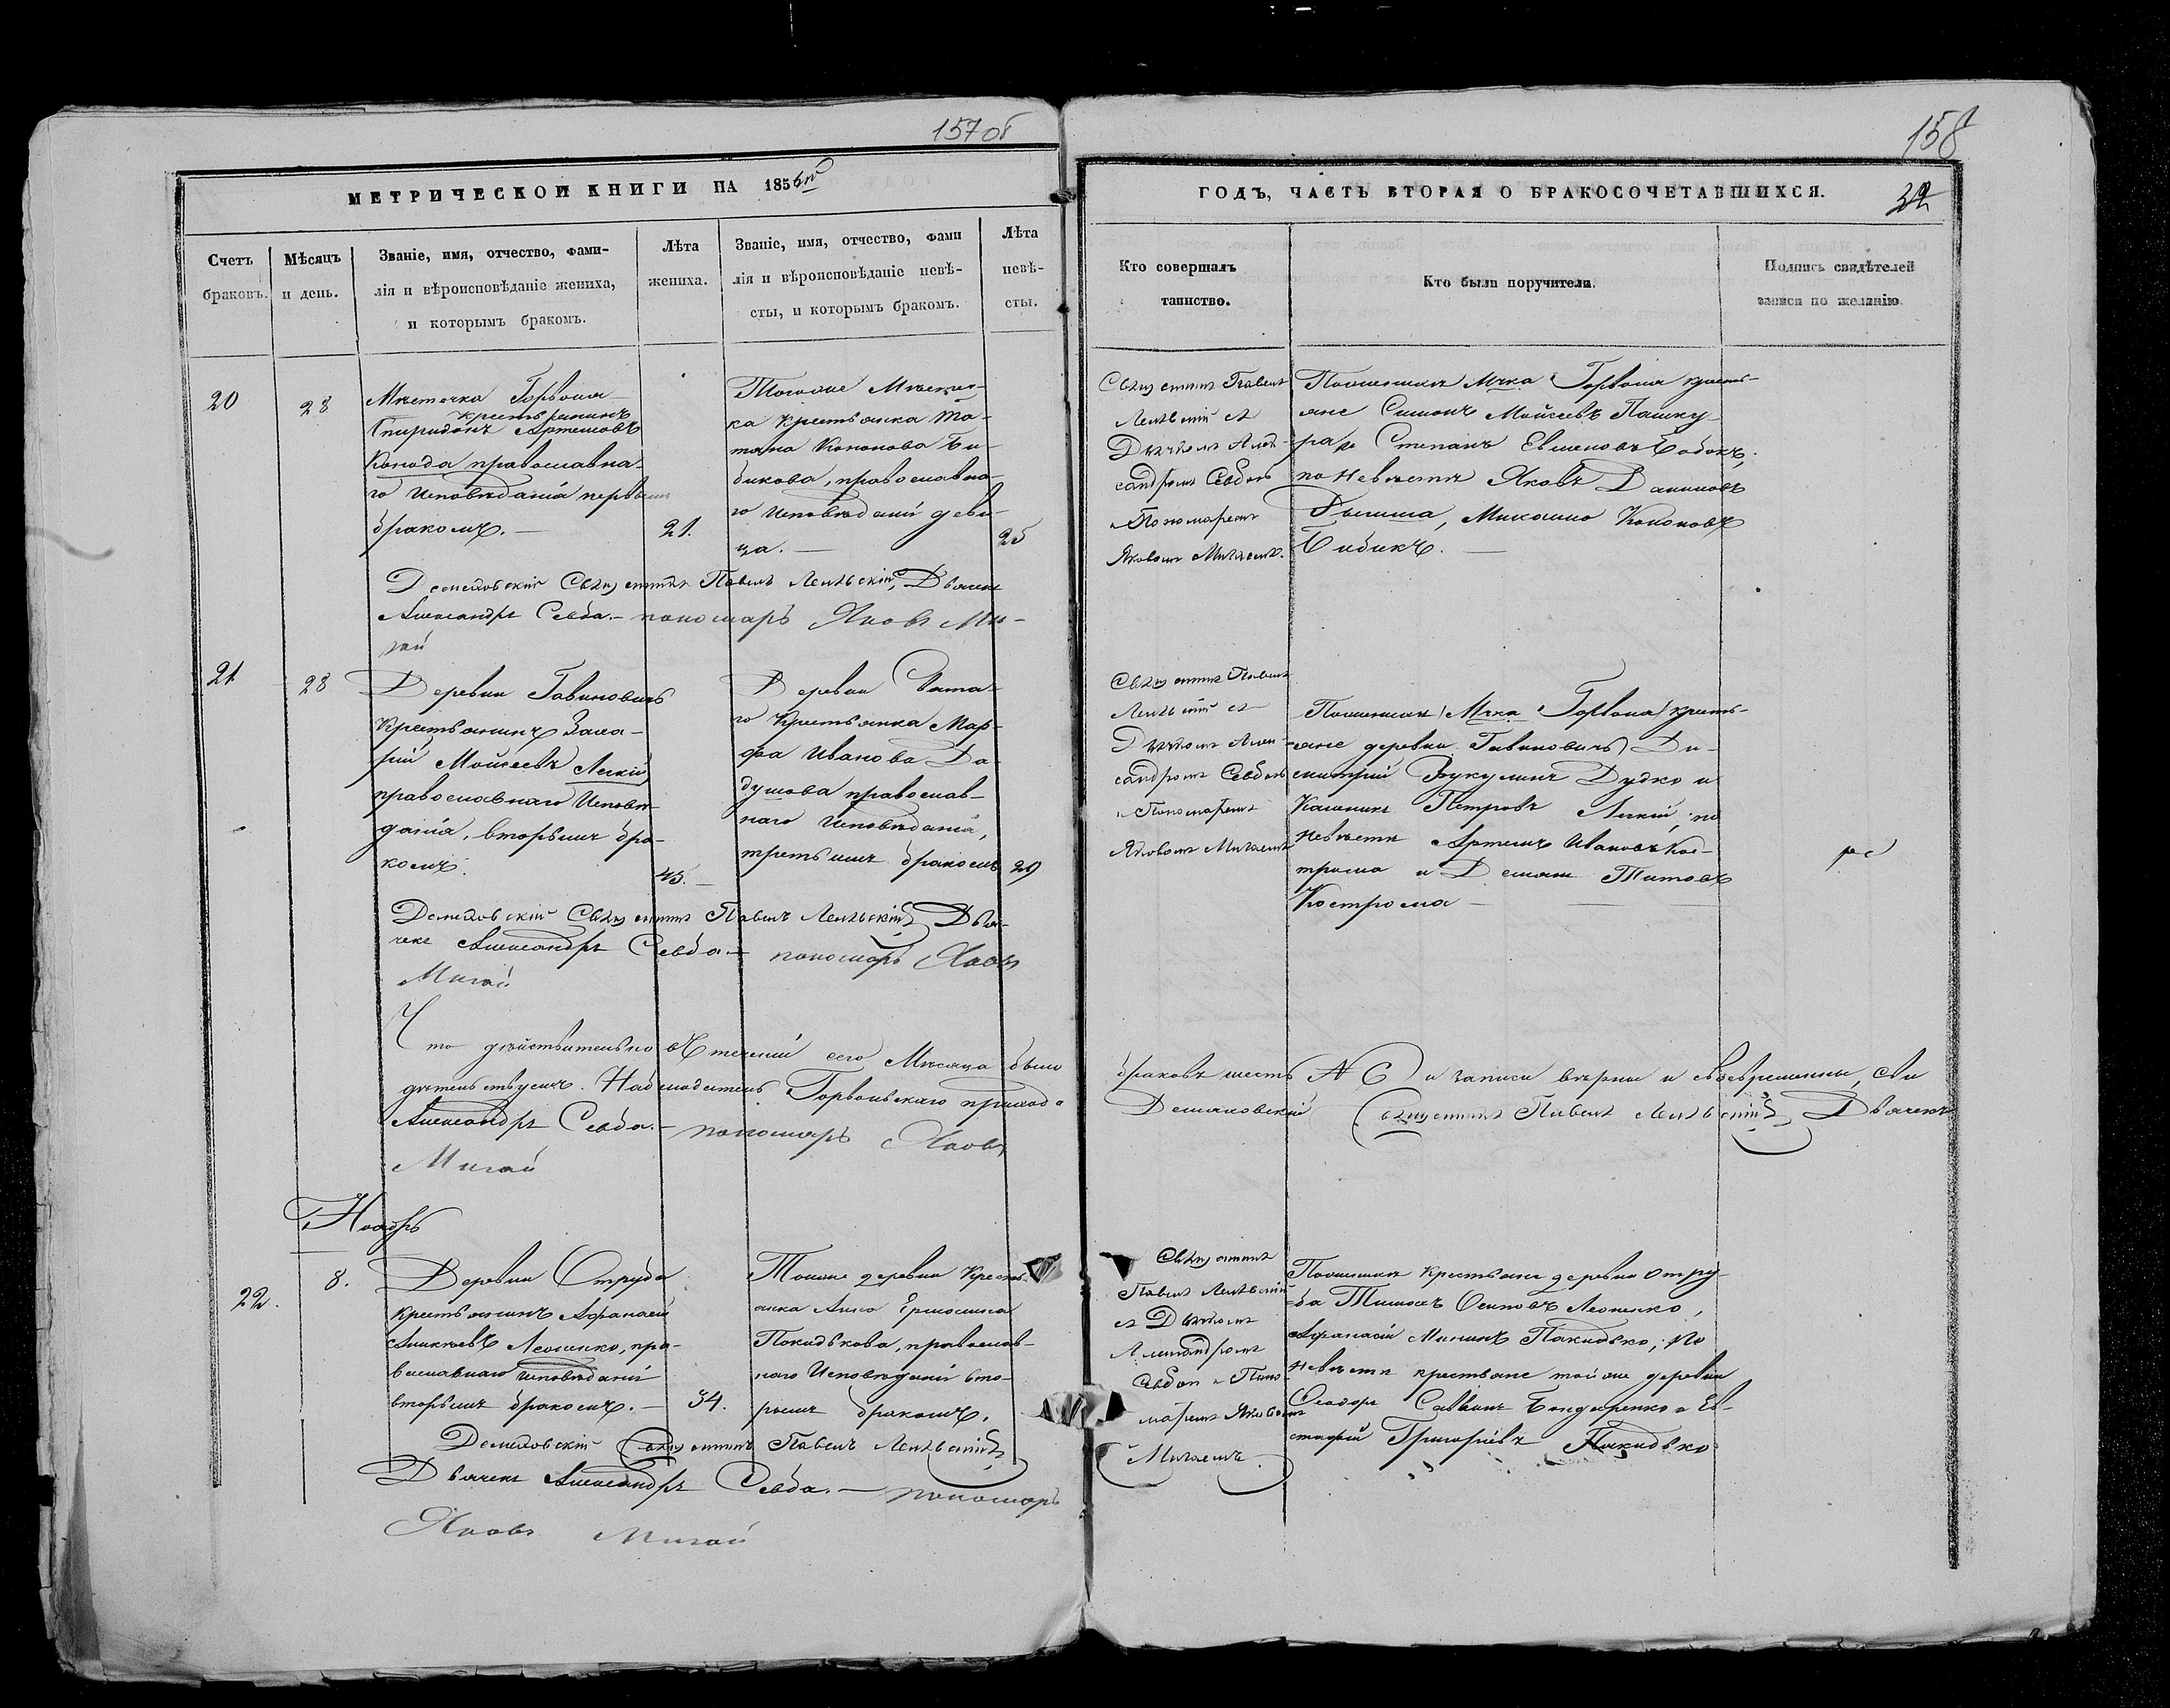 157 об
МЕТРИЧЕСКОЙ КНИГИ НА 185
Счетъ
браковъ.
Мѣсяцъ
и день.
Званіе, имя, отчество, фами-
лія и вѣроисповѣданіе жениха,
и которымъ бракомъ.
Лѣта
жениха.
Званіе, имя, отчество, фами
лія и вѣроисповѣданіе невѣ-
сты, и которымъ бракомъ.
Лѣта
невѣ-
сты.
20
28
Мѣстечка Горволя
крестьянинъ
Спиридонъ Артемовъ
православна-
го Исповѣданія первымъ
бракомъ.
21.
Тогоже Мѣстеч-
ка крестьянка Та-
тіана Кононова Би-
бикова, православна-
го Исповѣданія деви-
ца.
25
Священникъ Павелъ Дьячекъ
Александръ Севба. пономарь Яковъ Ми-
гай
21
28
Деревни Гавиновичь
Крестьянинъ Заха-
рій Мойсеевъ Легкій
православнаго Исповѣ-
данія, вторымъ бра-
комъ.
45.
Деревни
го Крестьянка Мар-
фа Иванова До-
душова православ-
наго Исповѣданія,
третьимъ бракомъ
29
Священникъ Павелъ Дья-
чекъ Александръ Севба. пономарь Яковъ
Мигай
Что дѣйствительно въ теченіи сего Мѣсяца было
Горвольскаго прихода
Александръ Севба. пономарь Яковъ
Мигай
Ноябрь
22.
8.
Деревни Отруба
крестьянинъ Афанасій
Аникѣевъ Леоненко, пра-
вославнаго исповѣданія
вторымъ бракомъ.
34.
Тойже деревни Кресть-
янка Анна Ермолина
Покидькова, православ-
наго Исповѣданія вто-
рымъ бракомъ.
Священникъ Павелъ
Дьячекъ Александръ Севба. пономарь
Яковъ Мигай
158
ГОДЪ, ЧАСТЬ ВТОРАЯ О БРАКОСОЧЕТАВШИХСЯ.
Кто совершалъ
таинство.
Кто были поручители.
Подпись свидѣтелей
записи по желанію.
Павелъ
съ
Дьячкомъ Алек-
сандромъ Севбою
и Пономаремъ
Яковомъ Мигаемъ.
По женихѣ Мѣчка Горволя кресть-
яне Симонъ Мойсеевъ Пашку-
ра и Степанъ Бобокъ,
по Невѣстѣ Яковъ Даниловъ
Кононовъ
Бибикъ.
Павелъ
съ
Дьячкомъ Алек-
сандромъ Севбою
и Пономаремъ
Яковомъ Мигаемъ
По женихѣ Мѣчка Горволя кресть-
яне деревни Гавиновичь Ди-
митрій Дудко и
Петровъ Легкій, по
Невѣстѣ Артемъ Ивановъ Кос-
трома и Демянъ Титовъ
Кострома
браковъ шесть № 6 и записи вѣрны и своевременны, сви
Священникъ Павелъ Дьячекъ
Священникъ
Павелъ
съ Дьячкомъ
Александромъ
Севбою и Поно-
маремъ Яковомъ
Мигаемъ.
По женихѣ Крестьяне деревни Отру-
ба Осиповъ Леоненко,
Афанасій Мининъ Покидько, По
Невѣстѣ крестьяне тойже деревни
Феодоръ Саввинъ Бондаренко и Ев-
стафій Григорьевъ Покидько